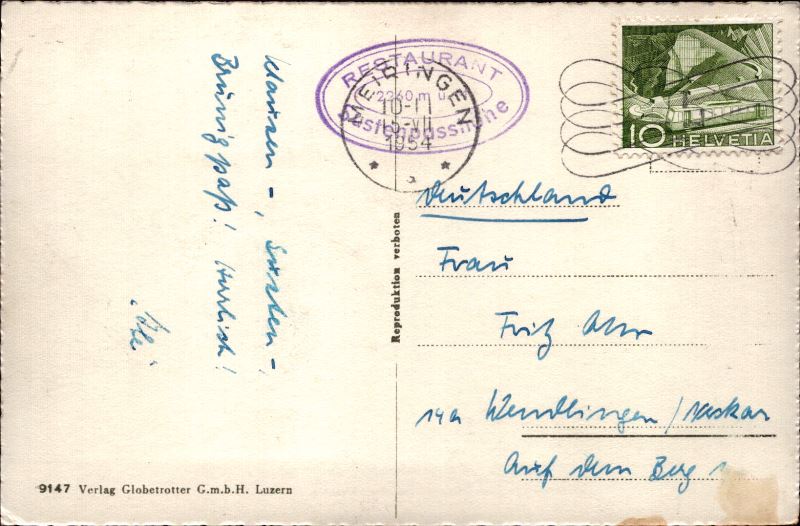 Klausen-, Susten-,
Brünigpaß! Herrlich!
RESTAURANT
2260 m ü
Sustenpasshöhe
MEIRINGEN
10-11
15-VII
1954
10 HELVETIA
Deutschland
Frau
Fritz Ohr
14a Wendlingen/Neckar
Auf dem Berg 1
Reproduktion verboten
9147 Verlag Globetrotter G.m.b.H. Luzern